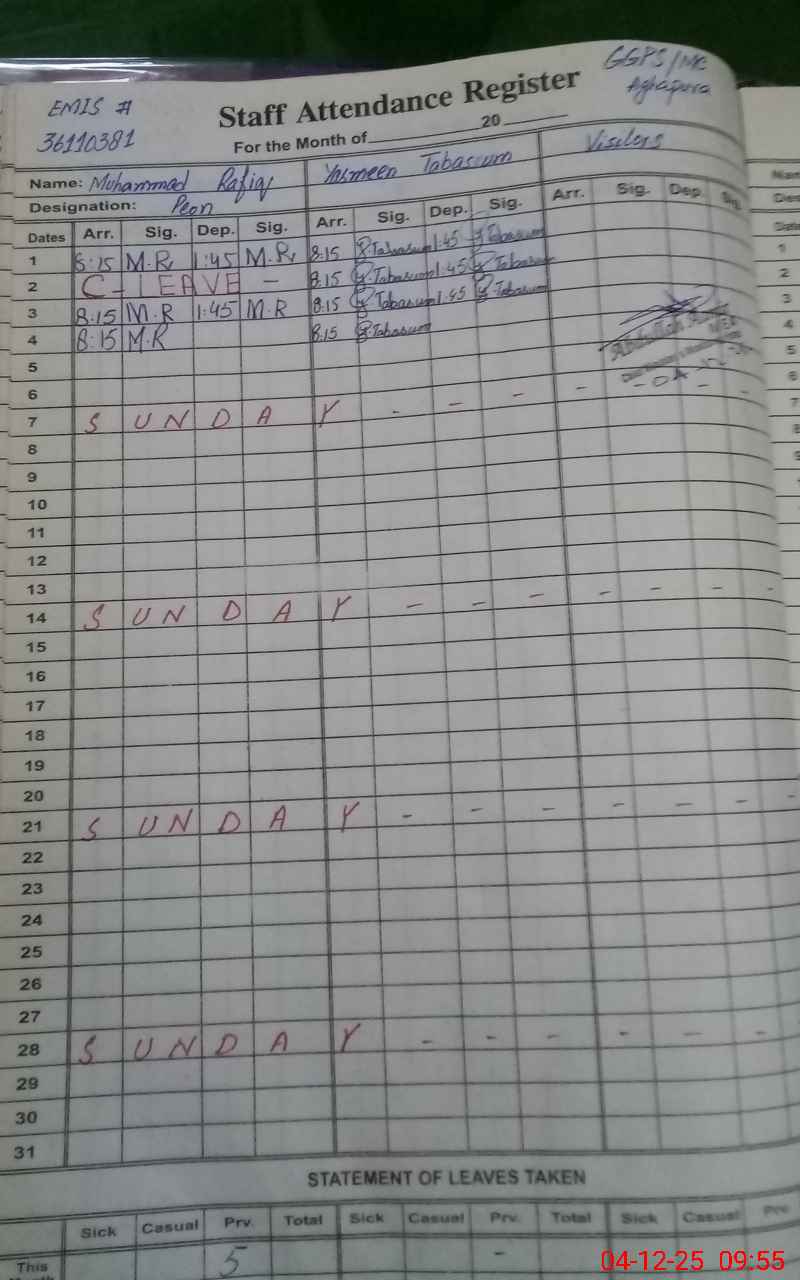 GGPS/MC
EMIS # Staff Attendance Register Aghapura
36110381 For the Month of 20
Name: Muhammad Rafiq Yasmeen Tabassum Visitors
Designation: Peon
Dates Arr. Sig. Dep. Sig. Arr. Sig. Dep. Sig. Arr. Sig. Dep. Sig.
1 8:15 M.R 1:45 M.R 8:15 Y.Tabasum 1:45 Y.Tabasum
2 C-LEAVE - 8.15 Y.Tabasum 1:45 Y.Tabasum
3 8:15 M.R 1:45 M.R 8:15 Y.Tabasum 1:45 Y.Tabasum
4 8:15 M.R 8:15 Y.Tabasum
5
6
7 S U N D A Y - - - - - -
8
9
10
11
12
13
14 S U N D A Y - - - - - - -
15
16
17
18
19
20
21 S U N D A Y - - - - - - -
22
23
24
25
26
27
28 S U N D A Y - - - - - -
29
30
31
STATEMENT OF LEAVES TAKEN
Sick Casual Prv. Total Sick Casual Prv. Total Sick Casual Prv
This 5 -
04-12-25 09:55